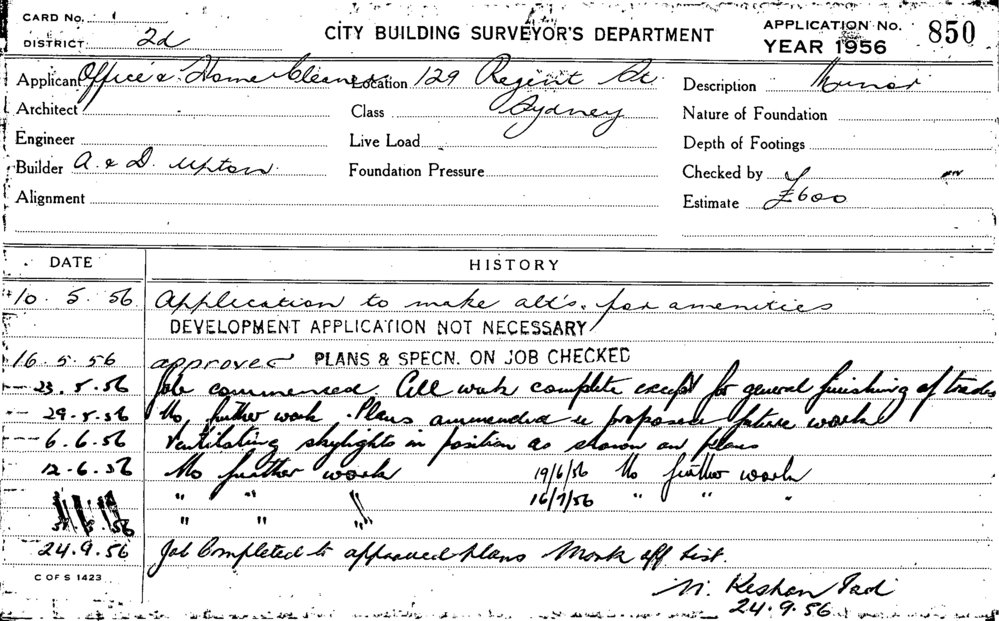 CARD No. 1
DISTRICT 2d
CITY BUILDING SURVEYOR'S DEPARTMENT
APPLICATION No. 850
YEAR 1956
Applicant Office & Home Cleaners Location 129 Regent St Description Minor
Architect Class Sydney Nature of Foundation
Engineer Live Load Depth of Footings
Builder A. & D. Upton Foundation Pressure Checked by
Alignment Estimate £600
DATE HISTORY
10. 5. 56 Application to make alt's. for amenities
DEVELOPMENT APPLICATION NOT NECESSARY
16. 5. 56 approved PLANS & SPECN. ON JOB CHECKED
23. 5. 56 Job commenced. All work complete except for general finishing of trades
29. 5. 56 No further work. Plans ammended proposed future work
6. 6. 56 Ventilating skylights in position as shown on plans
12. 6. 56 No further work 19/6/56 No further work
16/7/56 " " "
" " "
24. 9. 56 Job Completed to approved plans Mark off list.
C OF S 1423
24. 9. 56